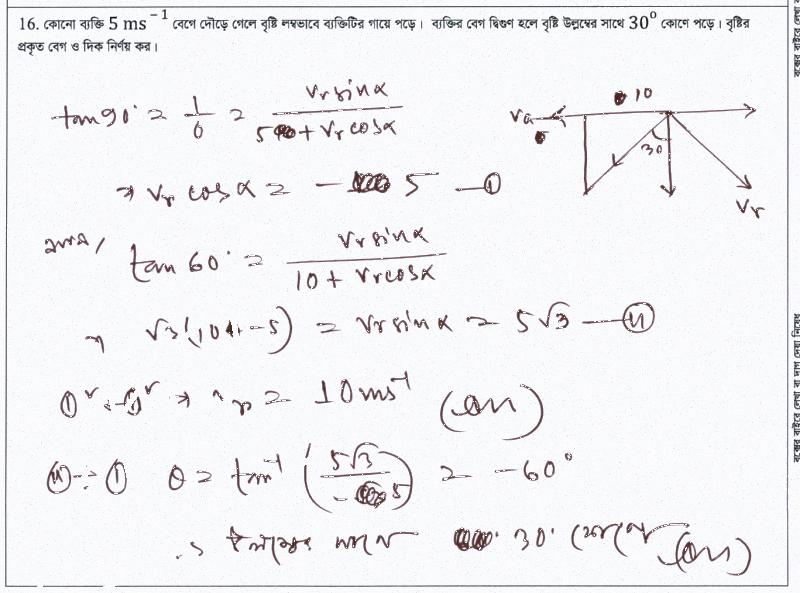 16. কোনো ব্যক্তি 5 ms⁻¹ বেগে দৌড়ে গেলে বৃষ্টি লম্বভাবে ব্যক্তিটির গায়ে পড়ে। ব্যক্তির বেগ দ্বিগুণ হলে বৃষ্টি উল্লম্বের সাথে 30° কোণে পড়ে। বৃষ্টির
প্রকৃত বেগ ও দিক নির্ণয় কর।
tan 90° = 1/0 = Vr sinα / 5 + Vr cosα
10
Va
30
Vr
⇒ Vr cosα = - 5 —①
tan 60° = Vr sinα / 10 + Vr cosα
⇒ √3 (10 + -5) = Vr sinα = 5√3 —②
⇒ Vr = 10 ms⁻¹ (Ans)
② ÷ ① θ = tan⁻¹ (5√3 / -5) = -60°
∴ উলম্বের সাথে 30° কোণে (Ans)
বক্সের বাইরে লেখা বা দাগ দেয়া নিষেধ